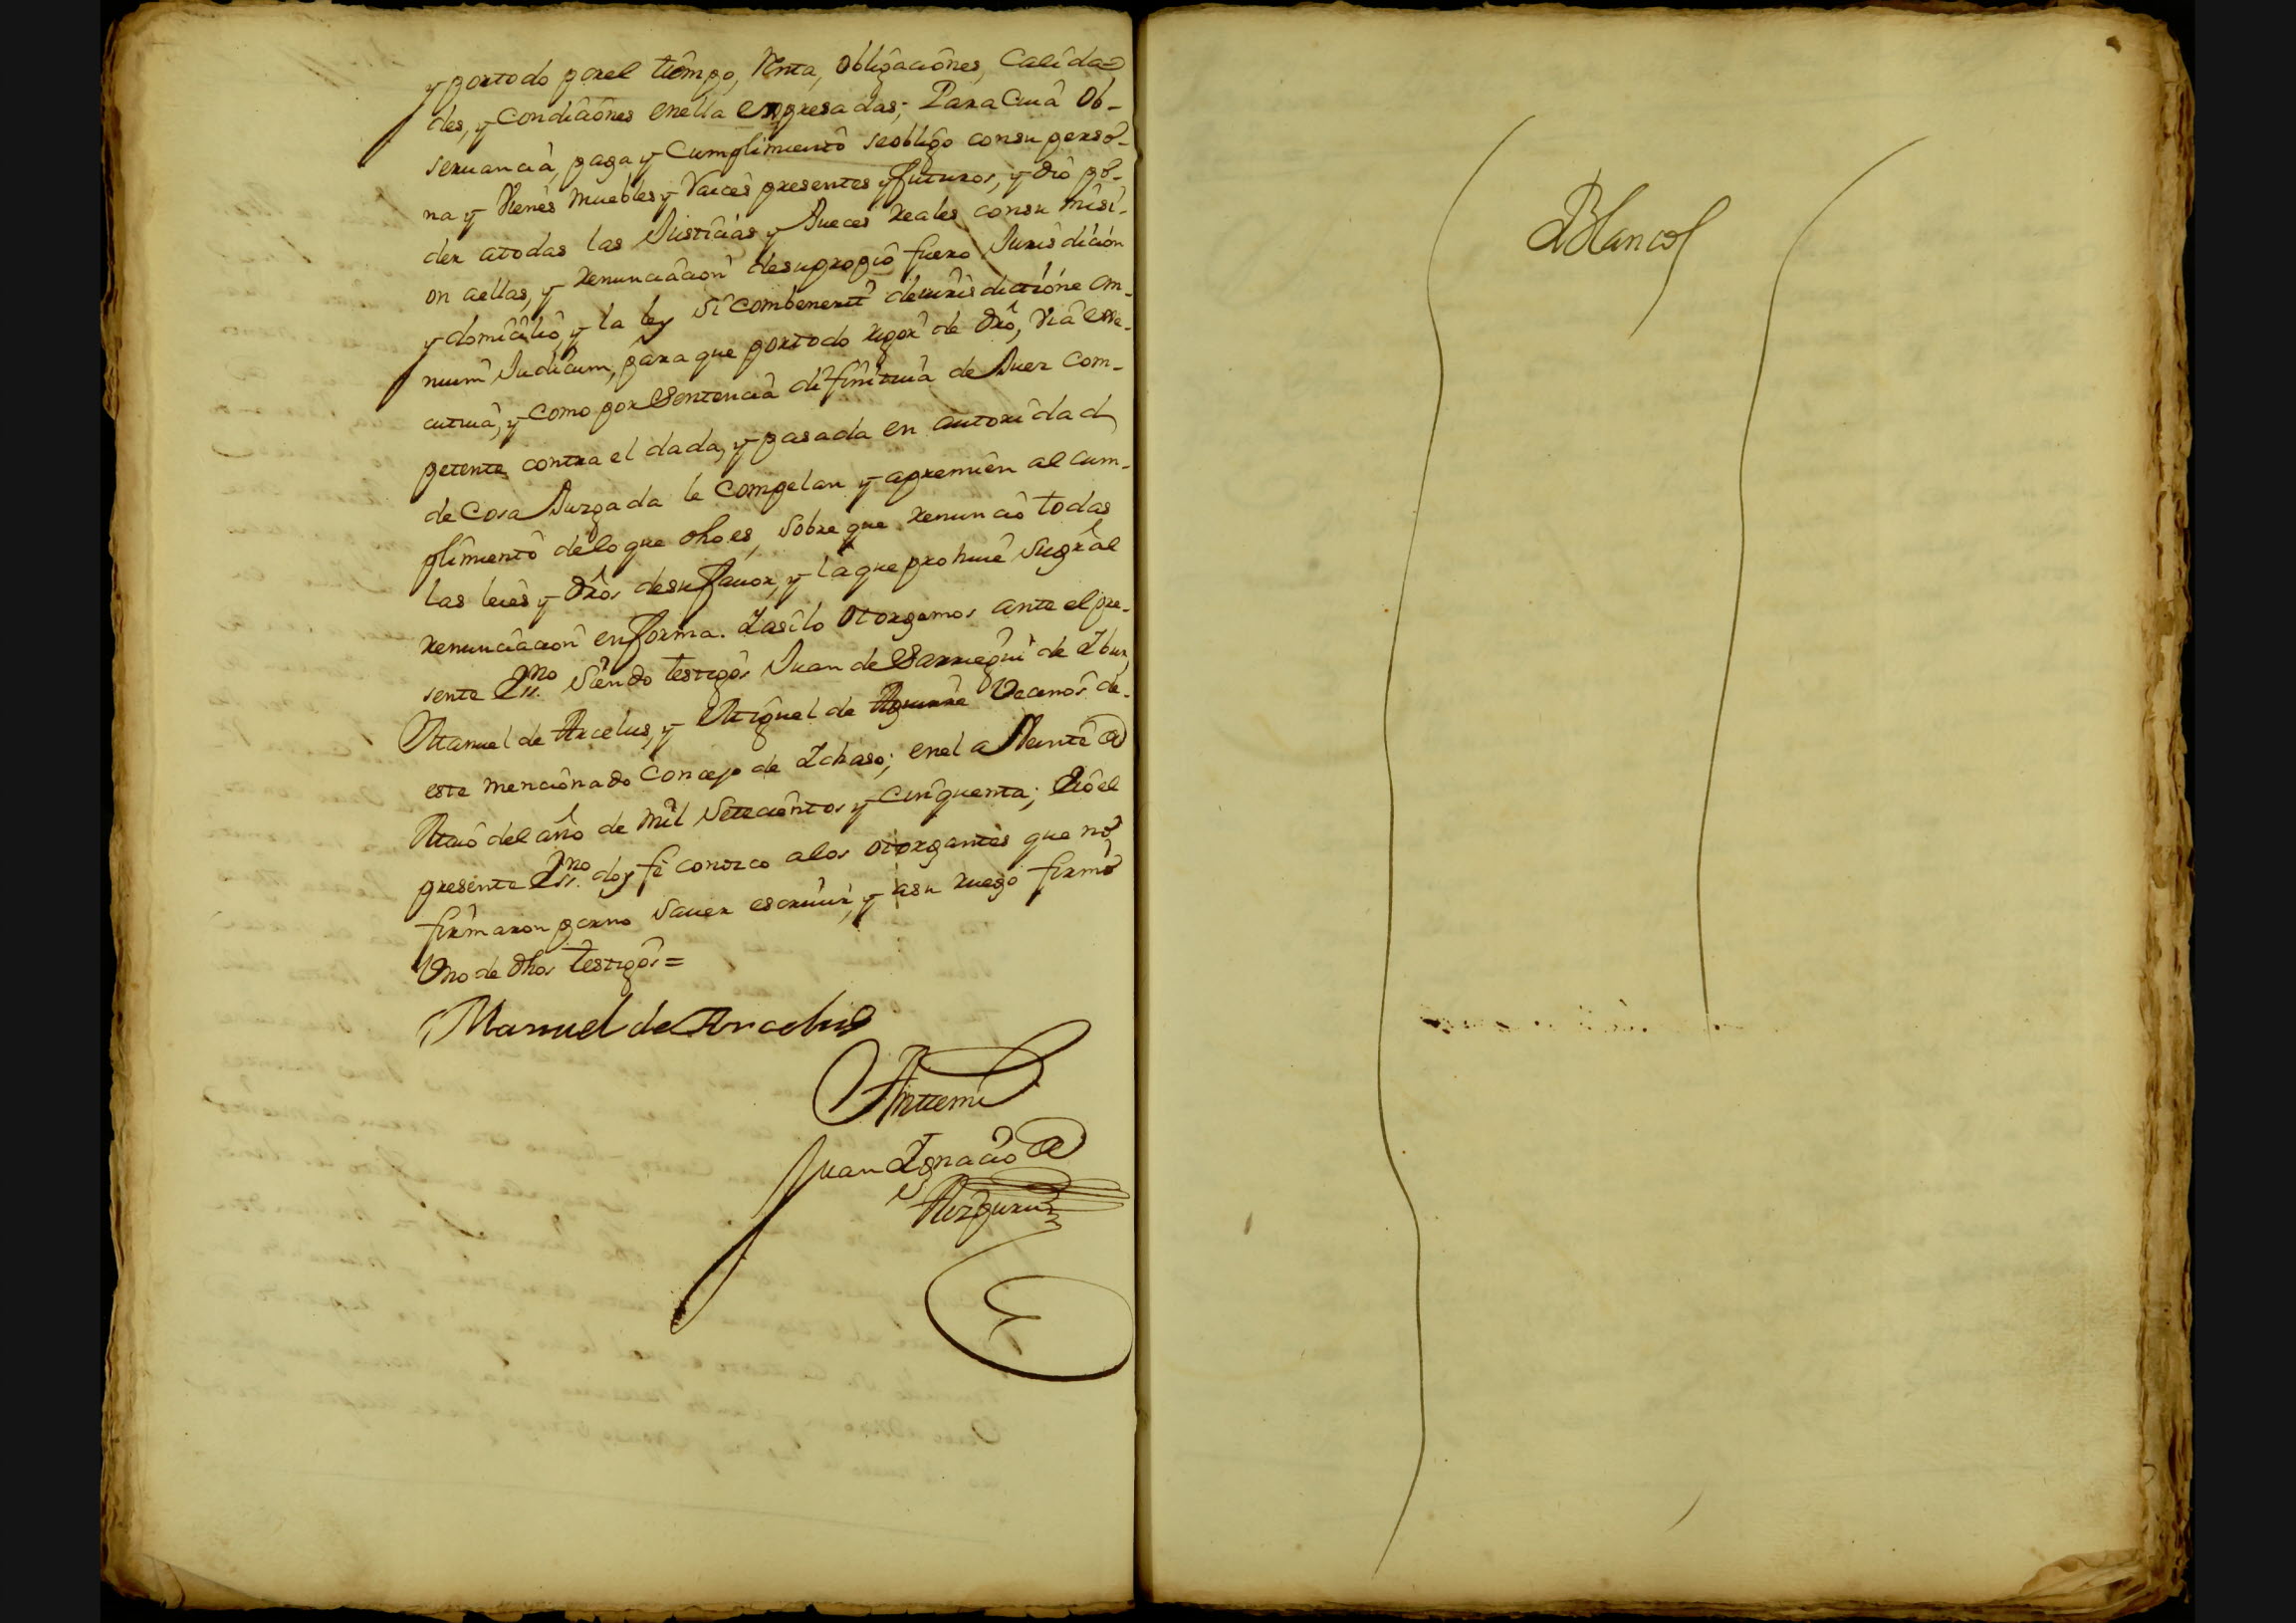 y portodo porel tiempo, Renta, Obligaciones, Calida=
des, y Condiciones enella Expresadas; Para Cuia Ob-
seruancia, paga y Cumplimiento seobligo consu perso-
na y Vienes muebles y Raices presentes y futuros, y dio po-
der atodas las Justicias y Jueces Reales consu misi-
on aellas, y Renunciacion desupropio fuero Jurisdicion
y domicilio, y la ley Si Combenerit dejurisdictione om-
nium Judicum, para que portodo rigor de dro, via exe-
cutiua, y Como por Sentencia difinitiua de Juez Com-
petente contra el dada, y pasada en autoridad
de Cosa Juzgada le Compelan y apremien al cum-
plimiento deloque dho es, Sobre que Renuncio todas
las leies y dros desu fauor, y laque prohiue Sugral
Renunciacion enforma. Iasilo Otorgamos ante elpre-
sente Essno Siendo testigos Juan de Sarriegui de Ibur,
Manuel de Arcelus, y Miguel de Aguirre Vecinos de-
este mencionado Concejo de Ichaso; enel a Veinte de
Maio del año de mil Setecientos y Cinquenta; Eioel
presente Essno doy fe conozco alos otorgantes que no
firmaron porno Sauer escriuir, y asu ruego firmo
Uno de dhos testigos=
Manuel de Arcelus
Antemi
Juan Ignacio de
Aizpuru
Blanco